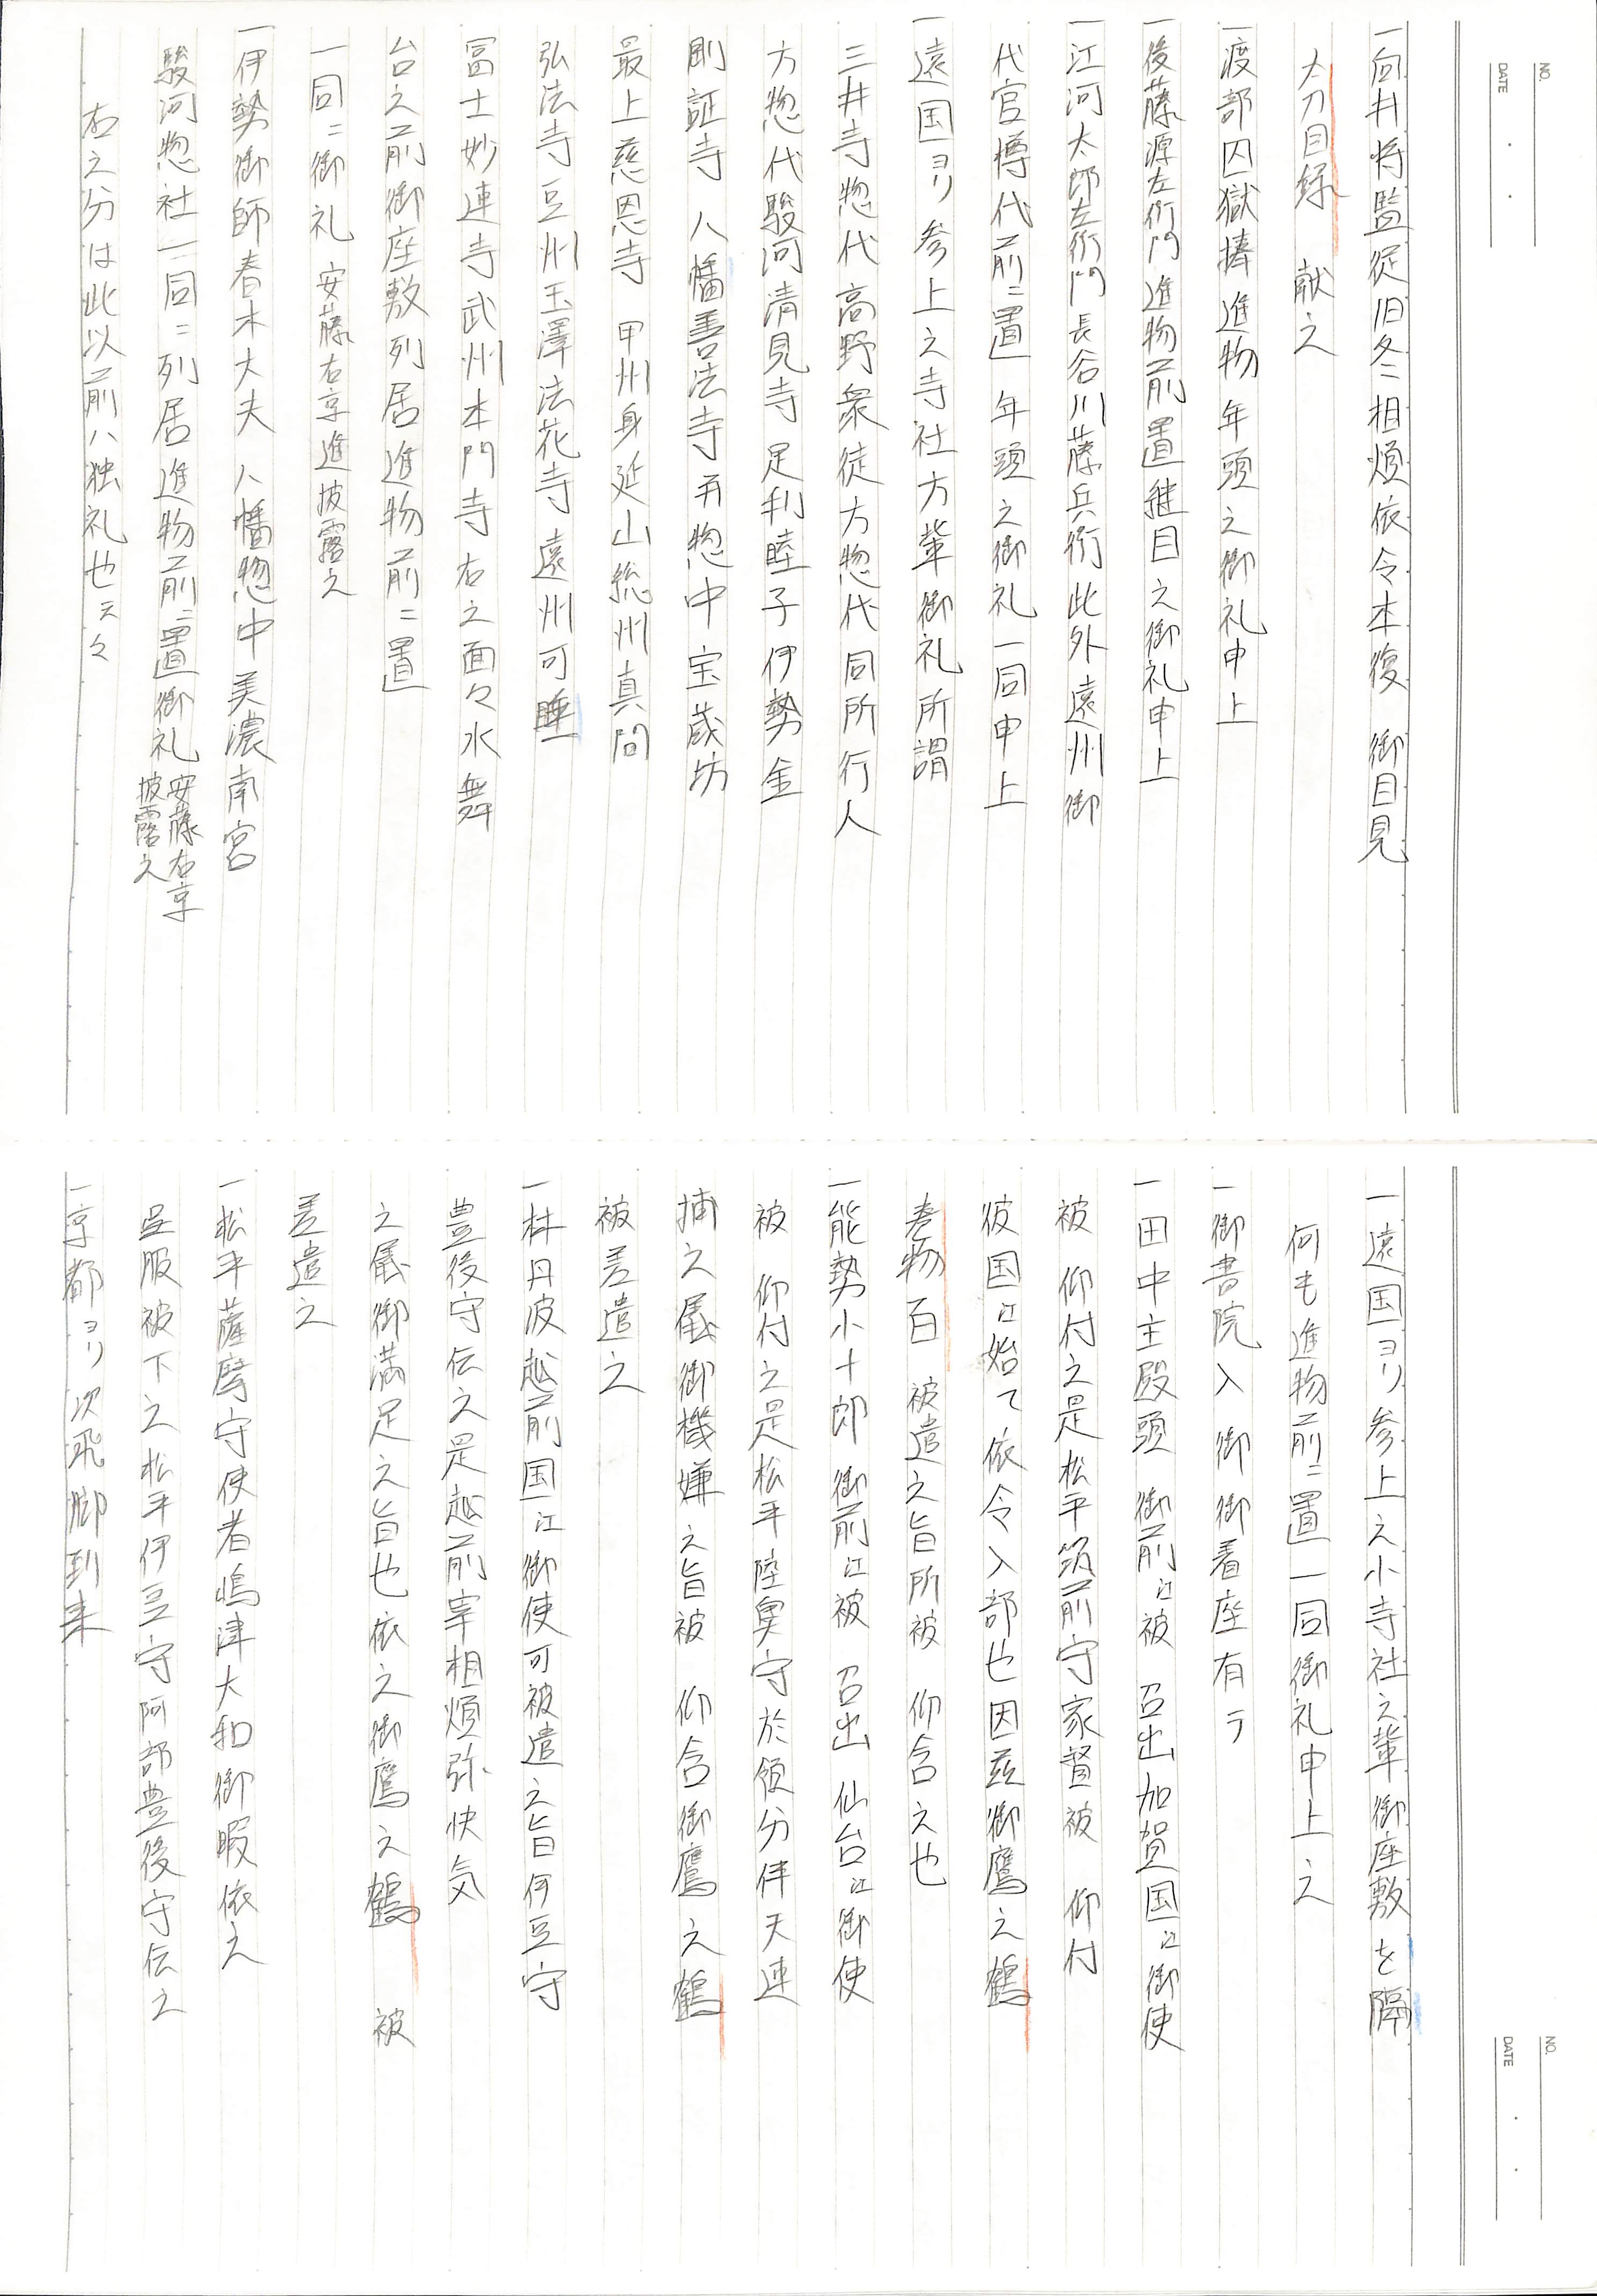 NO.
DATE
一向井将監従旧冬ニ相煩依令本復　御目見
太刀目録　献之
一渡部囚獄捧進物年頭之御礼申上
一後藤源左衛門進物前置継目之御礼申上
一江河太郎左衛門長谷川藤兵衛此外遠州御
代官樽代前ニ置　年頭之御礼一同申上
一遠国ヨリ参上之寺社方輩御礼所謂
三井寺惣代高野衆徒方惣代同所行人
方惣代駿河清見寺足利睦子伊勢金
剛証寺　八幡善法寺并惣中宝蔵坊
最上慈恩寺　甲州身延山総州真間
弘法寺豆州玉澤法花寺遠州可睡
冨士妙連寺武州本門寺右之面々水舞
台之前御座敷列居進物前ニ置
一同ニ御礼　安藤右京進披露之
一伊勢御師春木大夫　八幡惣中美濃南宮
駿河惣社一同ニ列居進物前ニ置御礼安藤右京
披露之
右之分は此以前ハ独礼也云々
NO.
DATE
一遠国ヨリ参上之小寺社之輩御座敷を隔
何も進物前ニ置一同御礼申上之
一御書院入　御御着座有テ
一田中主殿頭　御前江被　召出加賀国江御使
被　仰付之是松平筑前守家督被　仰付
彼国江始て依令入部也因茲御鷹之鶴
巻物百　被遣之旨所被　仰含之也
一能勢小十郎　御前江被　召出　仙台江御使
被　仰付之是松平陸奥守於領分伴天連
捕之儀御機嫌之旨被　仰含御鷹之鶴
被差遣之
一林丹波越前国江御使可被遣之旨伊豆守
豊後守伝之是越前宰相煩弥快気
之儀御満足之旨也依之御鷹之鶴　被
差遣之
一松平薩摩守使者嶋津大和御暇依之
呉服被下之松平伊豆守阿部豊後守伝之
一京都ヨリ次飛脚到来